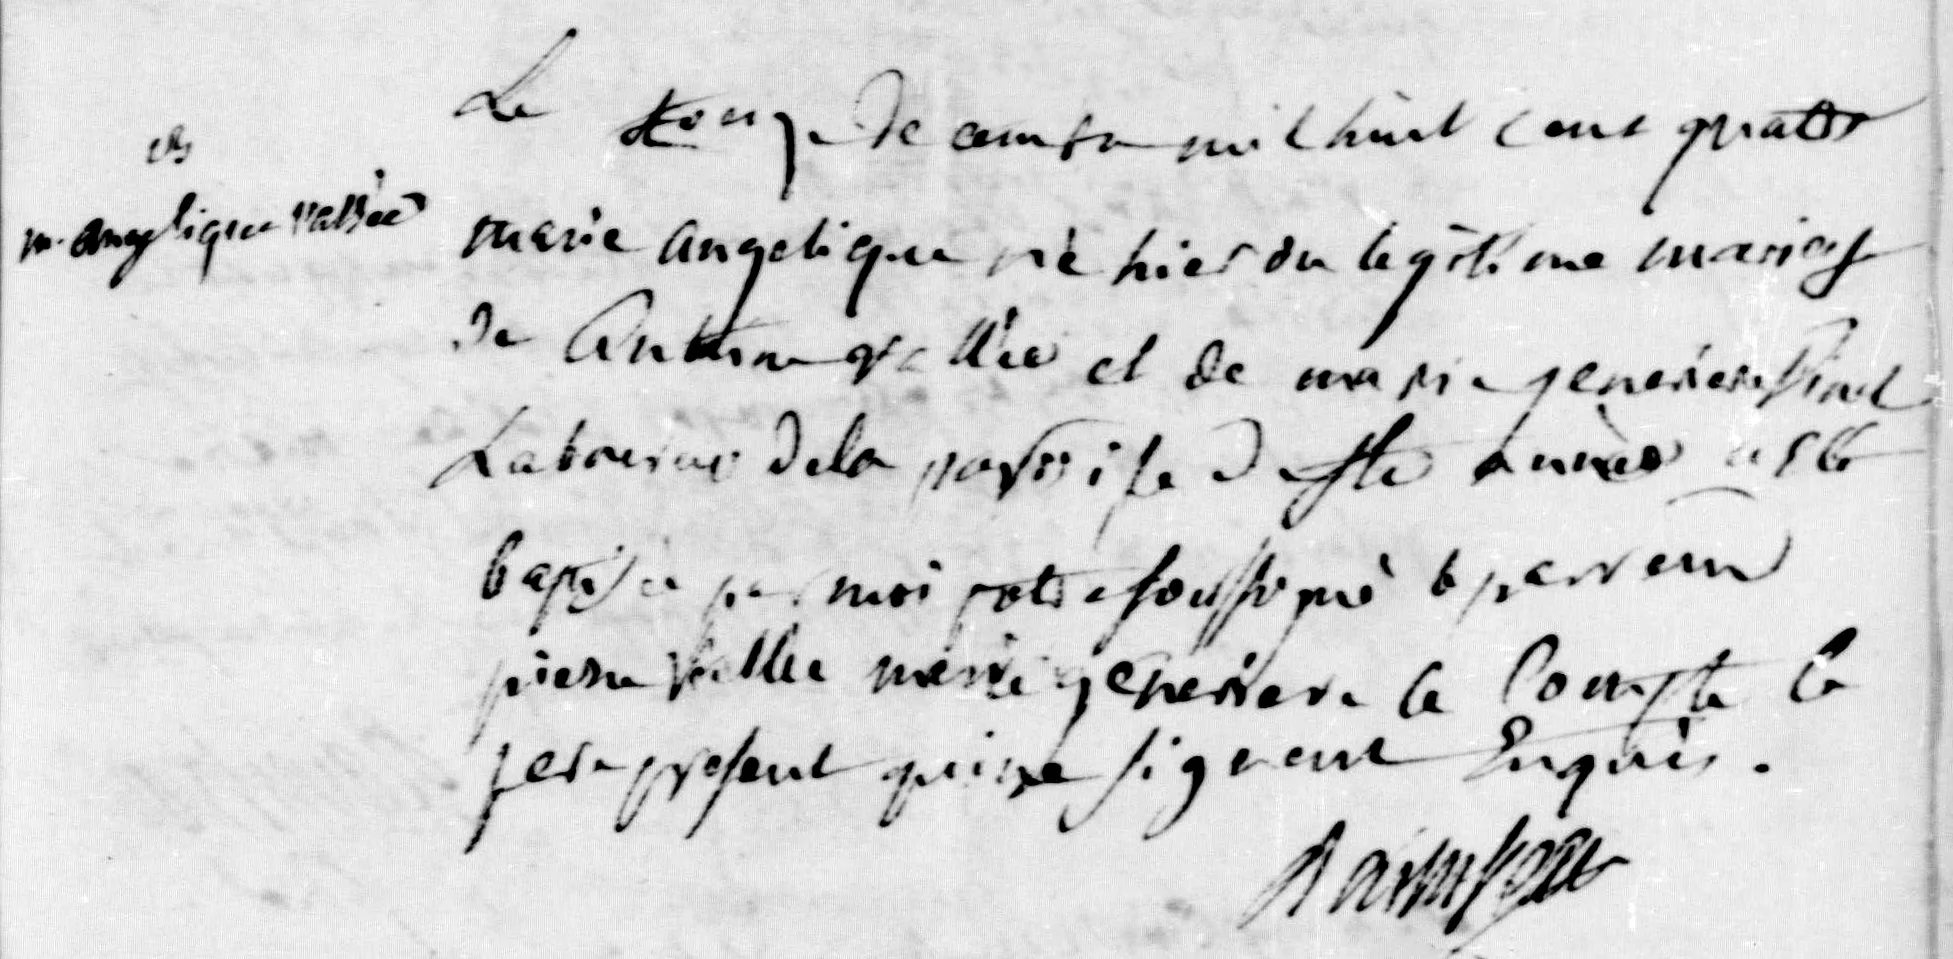 B
m. angelique vallée
Le onze Decembre mil huit cent quatre
marie angelique né hier du legitime mariage
De Antoine vallée et de marie genevieve
Laboureur de la paroisse De Ste année a été
baptisée par moi ptre soussigné le parrein
pierre vallée marie genevieve le Compte le
pere present qui ne signent Enquis.